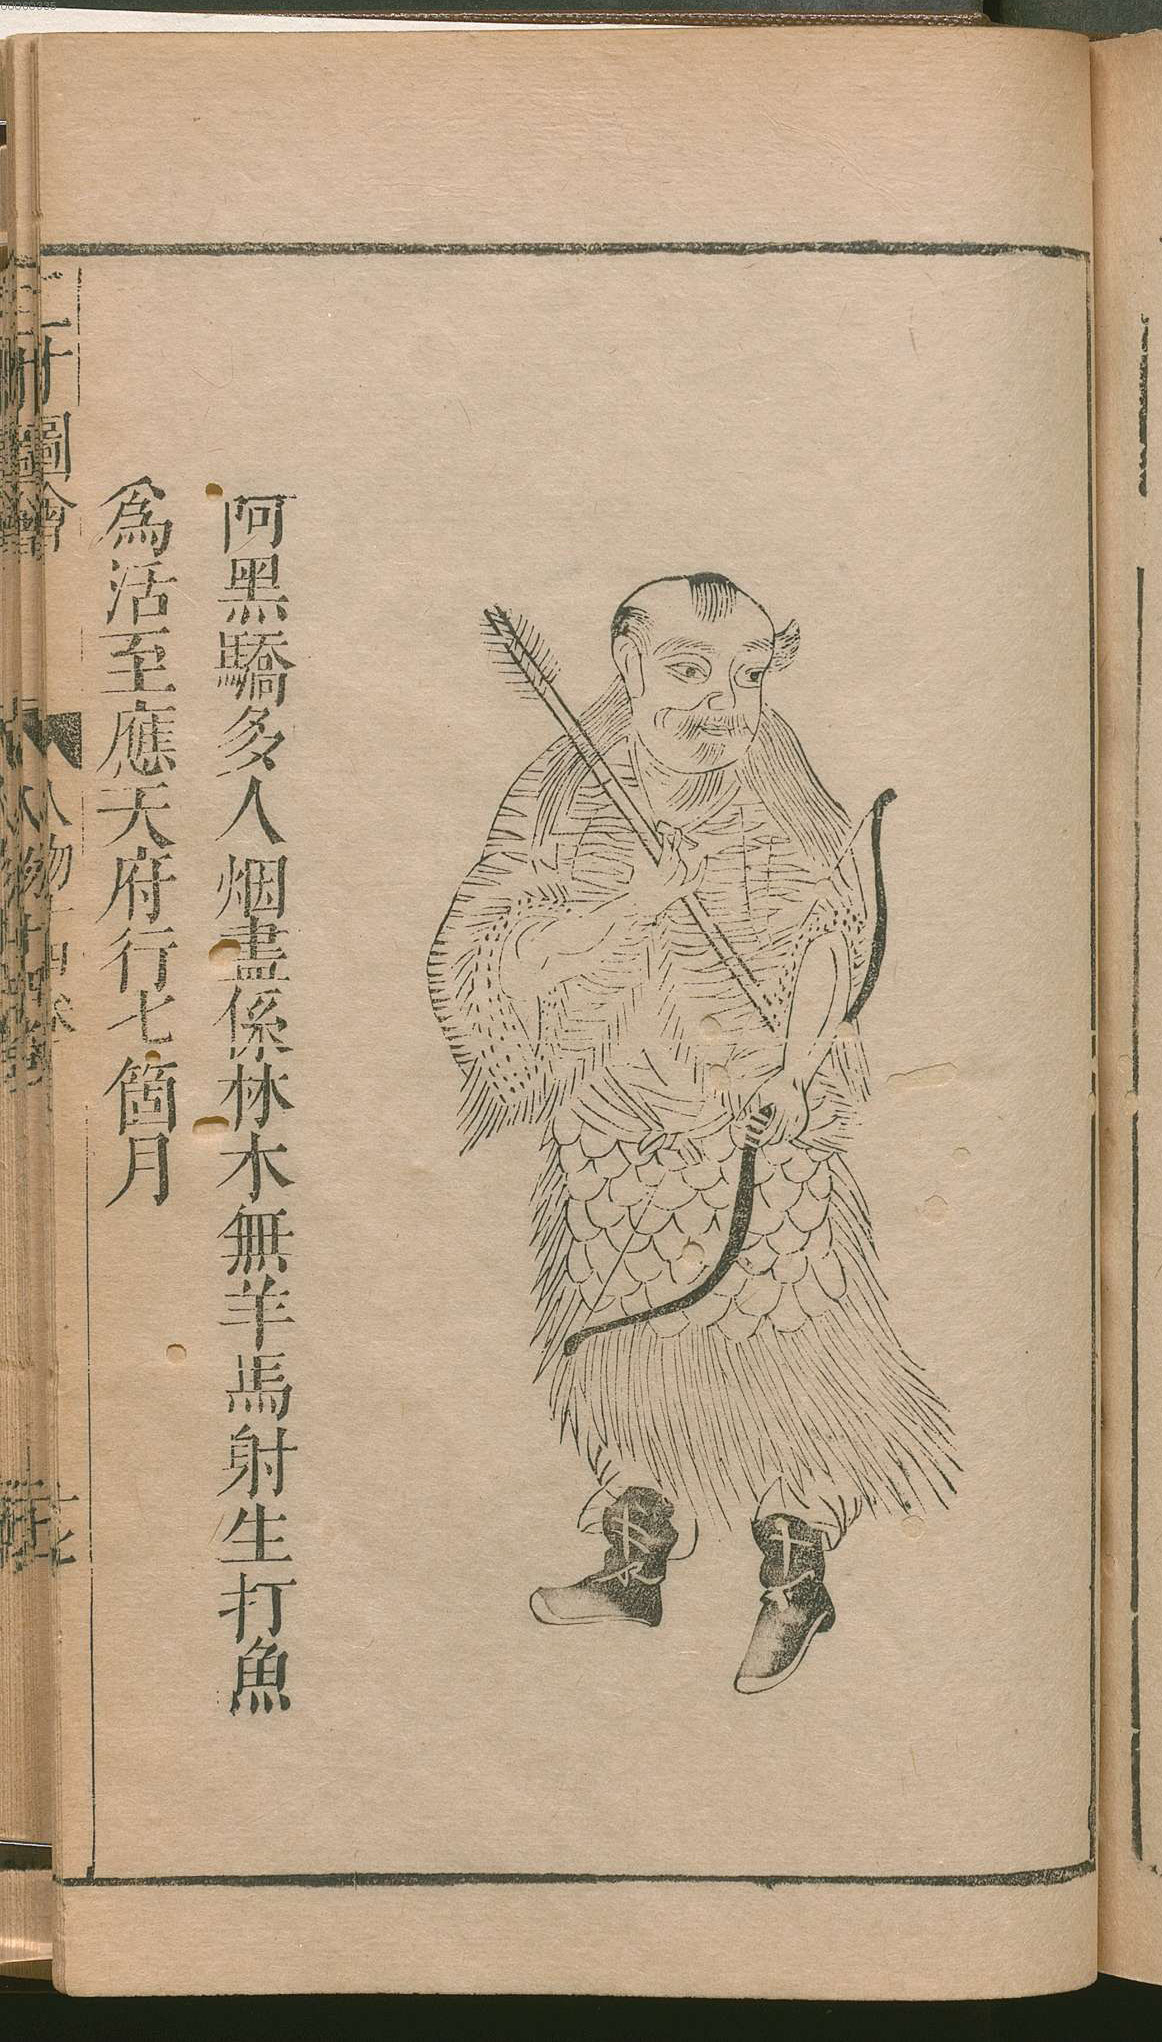 阿黑驕多人烟盡係林木無羊馬射生打魚
爲活至應天府行七箇月
圖會
人物十四卷
00000335